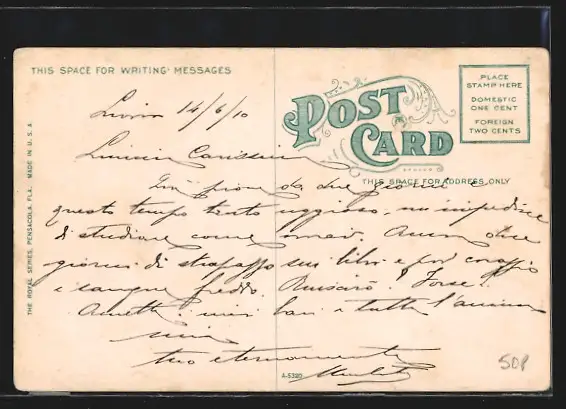 THIS SPACE FOR WRITING MESSAGES
POST CARD
PLACE
STAMP HERE
DOMESTIC
ONE CENT
FOREIGN
TWO CENTS
THIS SPACE FOR ADDRESS ONLY
THE ROYAL SERIES, PENSACOLA, FLA. MADE IN U.S.A.
14/6/10
da due giorni e
questo tempo tanto uggioso, mi impedisce
di studiare come mai. Ancora due
giorni di strapazzo sui libri e poi coraggio
e sangue freddo. Riuscirò? Forse!
baci e tutta l'anima
mia
tuo eternamente
A-5320
50P